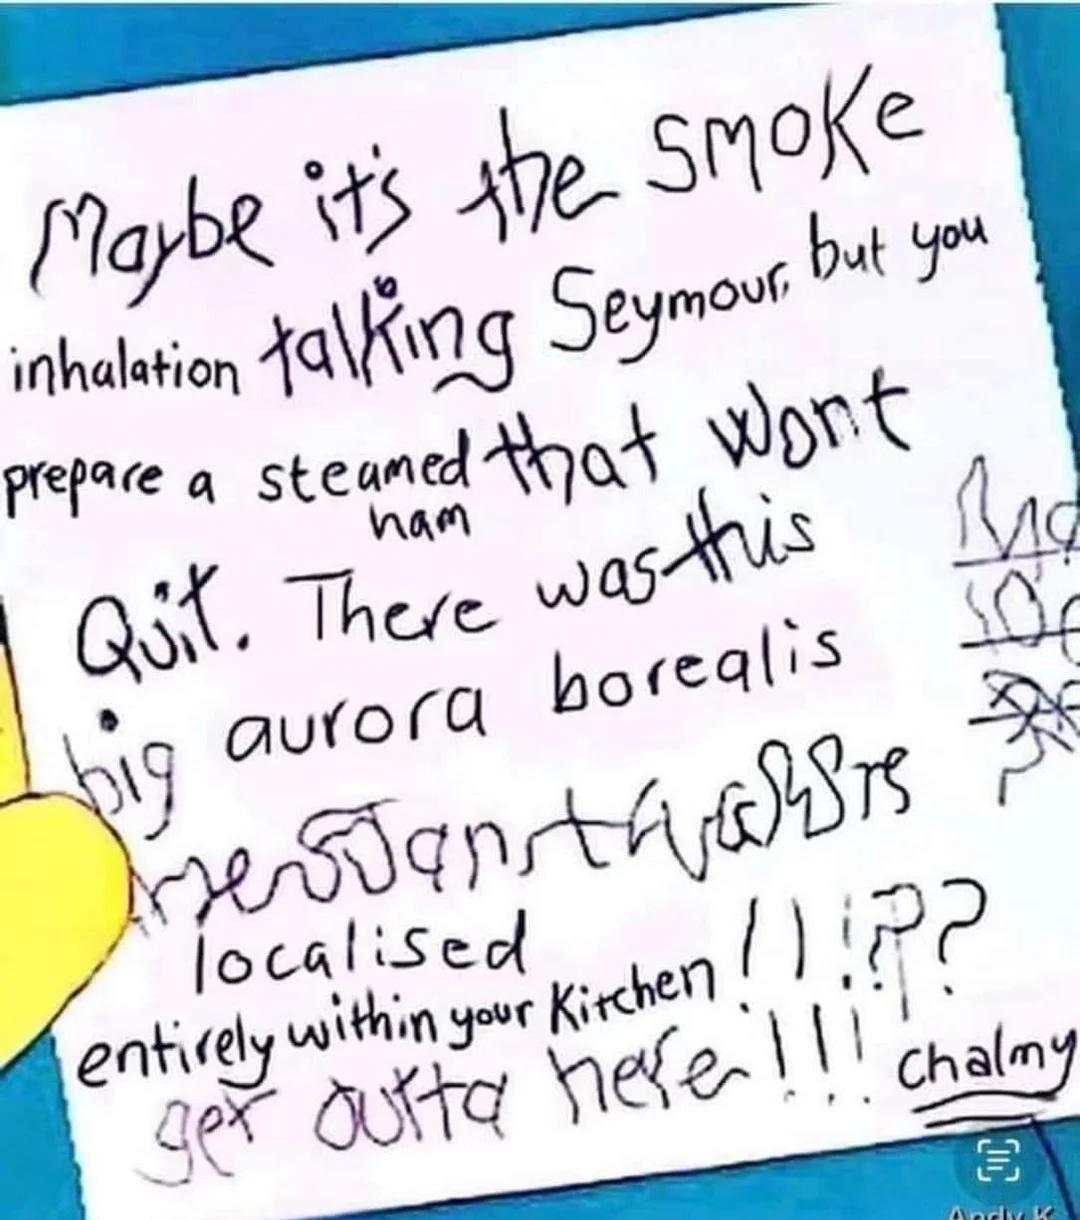 Maybe it's the smoke
inhalation talking Seymour, but you
prepare a steamed that wont
ham
Quit. There was this
big aurora borealis
localised
entirely within your Kitchen !!!???
get outta here!!!!
Chalmy
Andy K